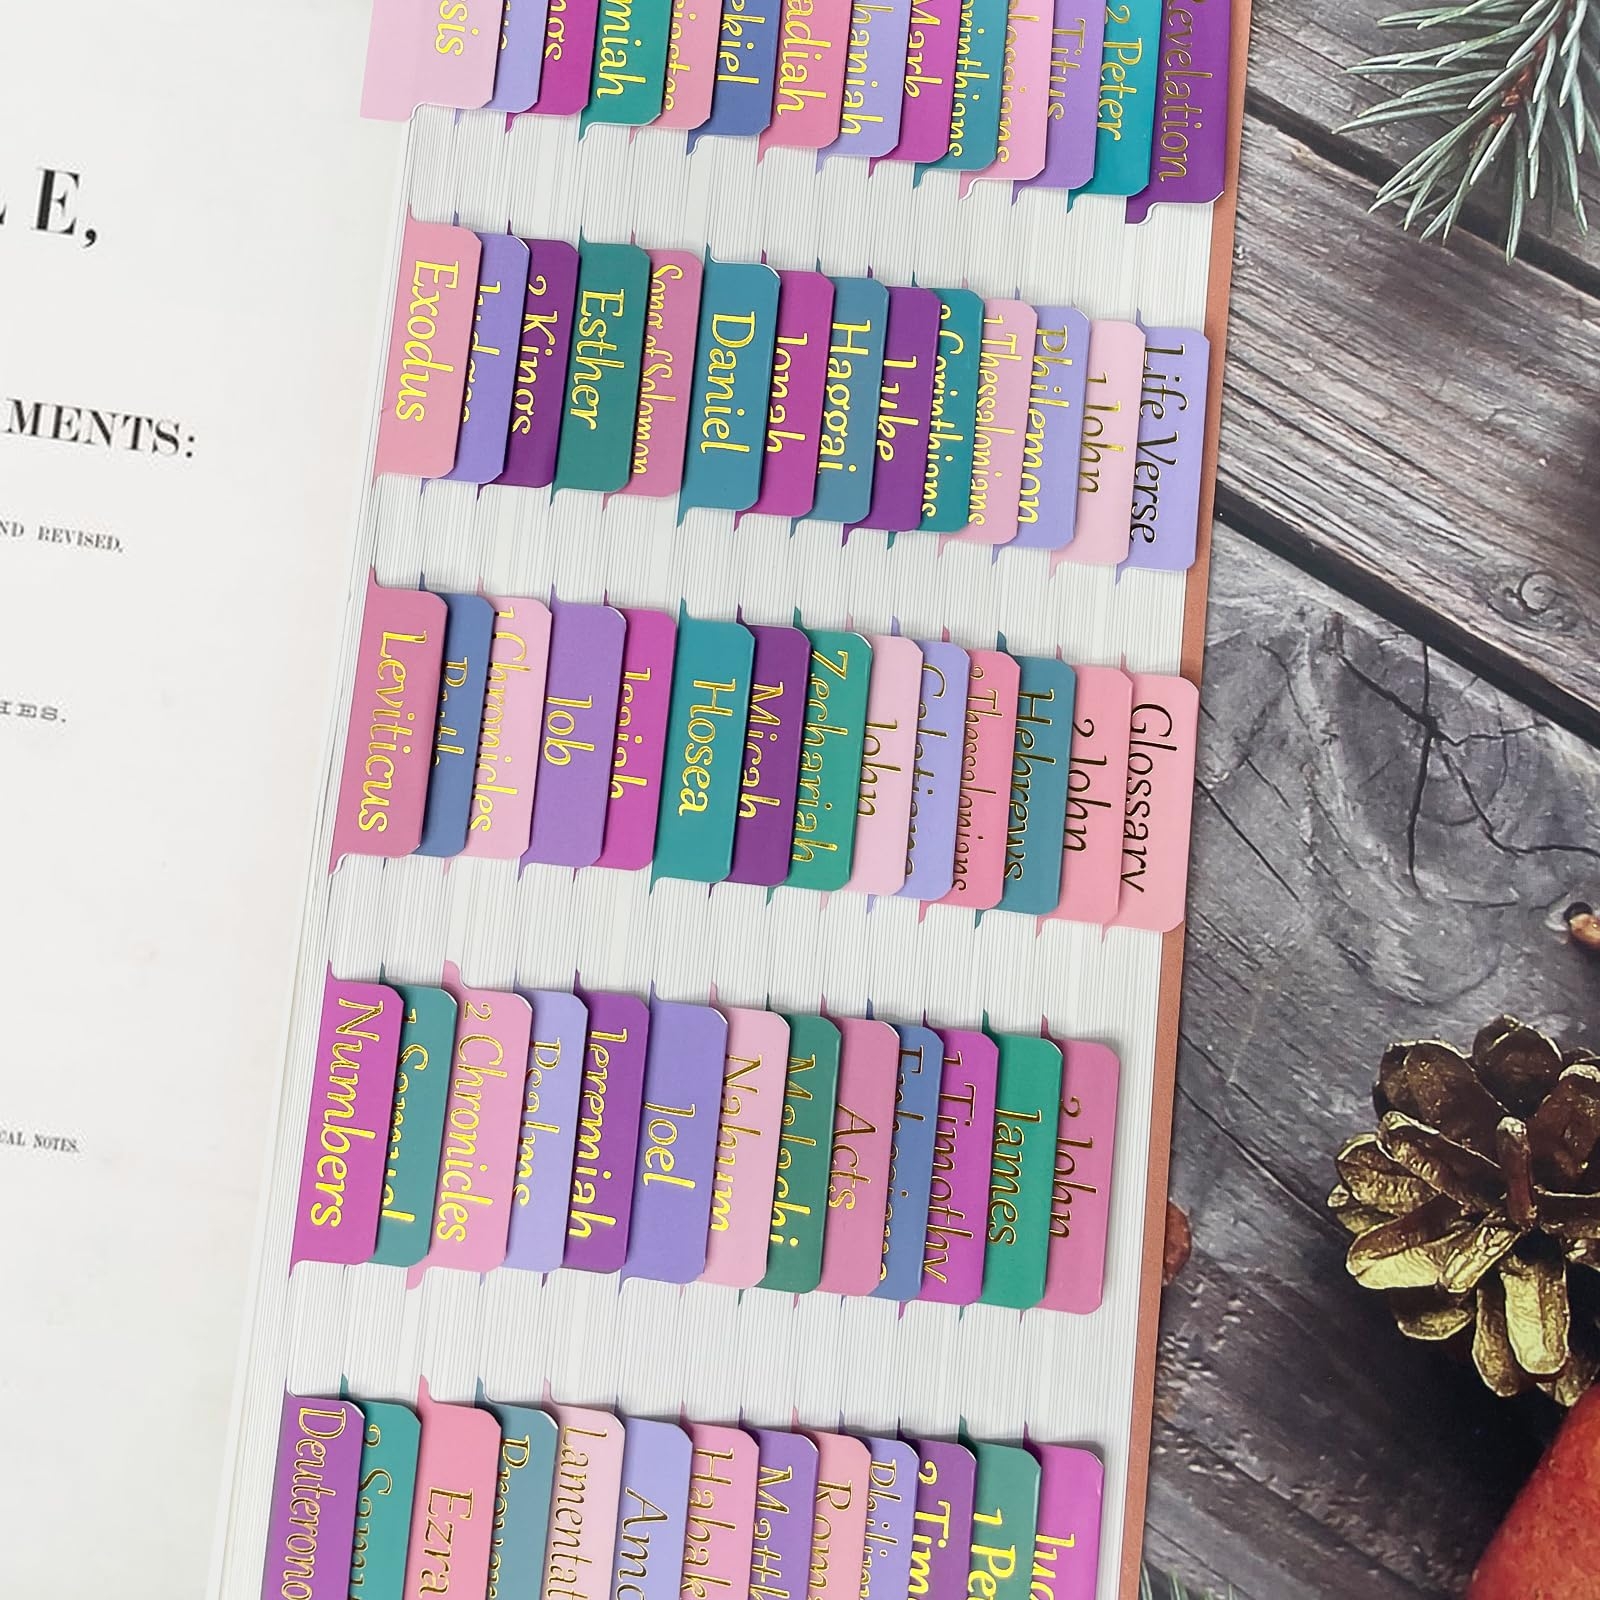 LE,
MENTS:
ND REVISED.
HES.
CAL NOTES.
sis
ngs
miah
siastes
ekiel
adiah
haniah
Mark
orinthians
olossians
Titus
2 Peter
Revelation
Exodus
Judges
2 Kings
Esther
Song of Solomon
Daniel
Jonah
Haggai
Luke
2 Corinthians
1 Thessalonians
Philemon
1 John
Life Verse
Leviticus
Ruth
1 Chronicles
Job
Isaiah
Hosea
Micah
Zechariah
John
Galatians
2 Thessalonians
Hebrews
2 John
Glossary
Numbers
1 Samuel
2 Chronicles
Psalms
Jeremiah
Joel
Nahum
Malachi
Acts
Ephesians
1 Timothy
James
3 John
Deuterono
2 Samu
Ezra
Prover
Lamentat
Amo
Habak
Matth
Roma
Philipp
2 Tim
1 Pe
Jud